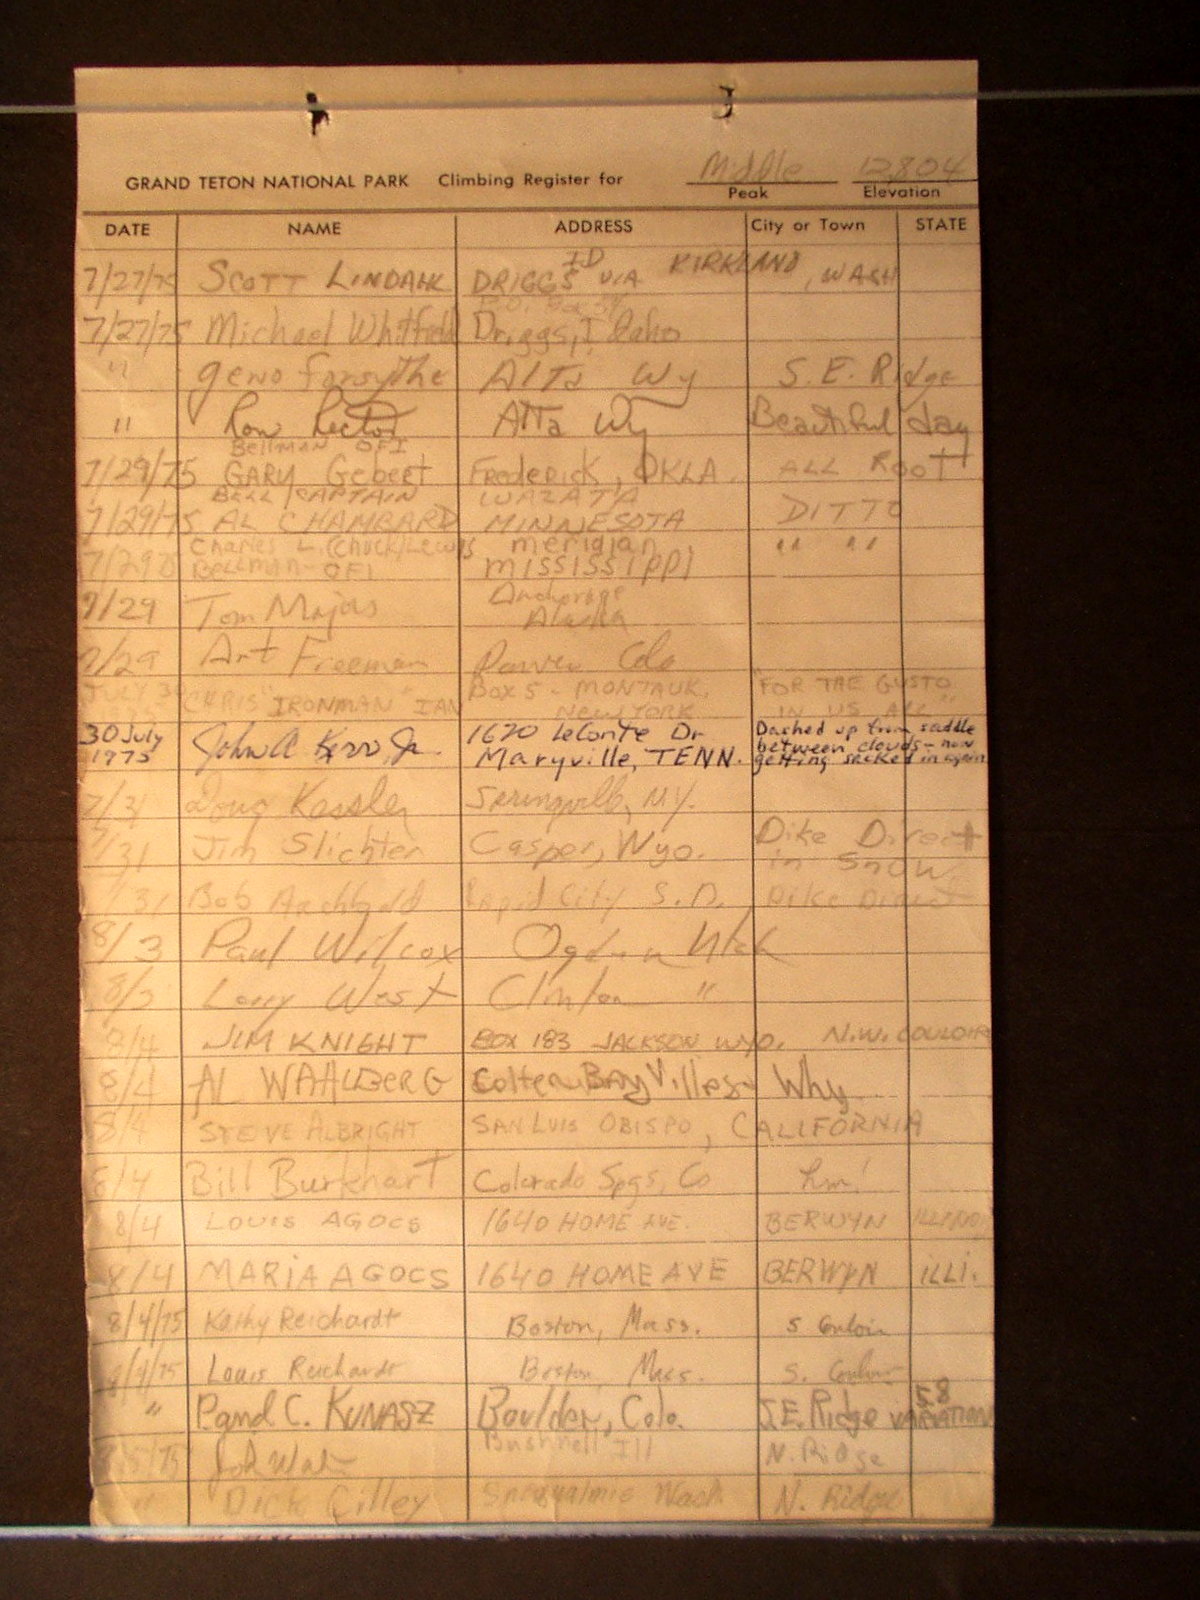 Middle 12,804
GRAND TETON NATIONAL PARK Climbing Register for Peak Elevation
DATE NAME ADDRESS City or Town STATE
7/27/75 SCOTT LINDAHL DRIGGS ID VIA KIRKLAND, WASH
7/27/75 Michael Whitfield Driggs, Idaho
" geno forsythe Alta Wy S.E. Ridge
" Ron Rector Alta Wy Beautiful day
BELLMAN OFI
7/29/75 GARY Gebert Frederick, OKLA. ALL ROOT
BELL CAPTAIN WAZATA
7/29/75 AL CHAMBARD MINNESOTA DITTO
Charles L. (Chuck) Lewis meridian " "
7/29 BELLMAN-OFI MISSISSIPPI
Anchorage
7/29 Tom Majas Alaska
7/29 Art Freeman Colo
JULY 30 CHRIS "IRONMAN" IAN BOX 5 - MONTAUK, "FOR THE GUSTO
NEW YORK IN US ALL"
30 July John A Kerr, Jr. 1620 LeConte Dr Dashed up from saddle
1975 Maryville, TENN. between clouds - now
getting socked in again
7/31 Doug Kessler Springville, N.Y.
7/31 Jim Slichter Casper, Wyo. Dike Direct
in Snow
7/31 Bob Archbold Rapid City S.D. Dike Direct
8/3 Paul Wilcox Ogden Utah
8/3 Larry West Clinton "
8/4 JIM KNIGHT BOX 183 JACKSON WYO. N.W. COULOIR
8/4 AL WAHLBERG Colter BAY Village Why
8/4 STEVE ALBRIGHT SAN LUIS OBISPO, CALIFORNIA
8/4 Bill Burkhart Colorado Spgs, Co hm!
8/4 LOUIS AGOCS 1640 HOME AVE. BERWYN ILLINO
8/4 MARIA AGOCS 1640 HOME AVE BERWYN ILLI.
8/4/75 Kathy Reichardt Boston, Mass. S Couloir
8/4/75 Louis Reichardt Boston, Mass. S. Couloir
" C. KUNASZ Boulder, Colo. S.E. Ridge 5.8 VARIATION
8/5/75 Bushnell Ill N. Ridge
" Dick Cilley Snoqualmie Wash N. Ridge